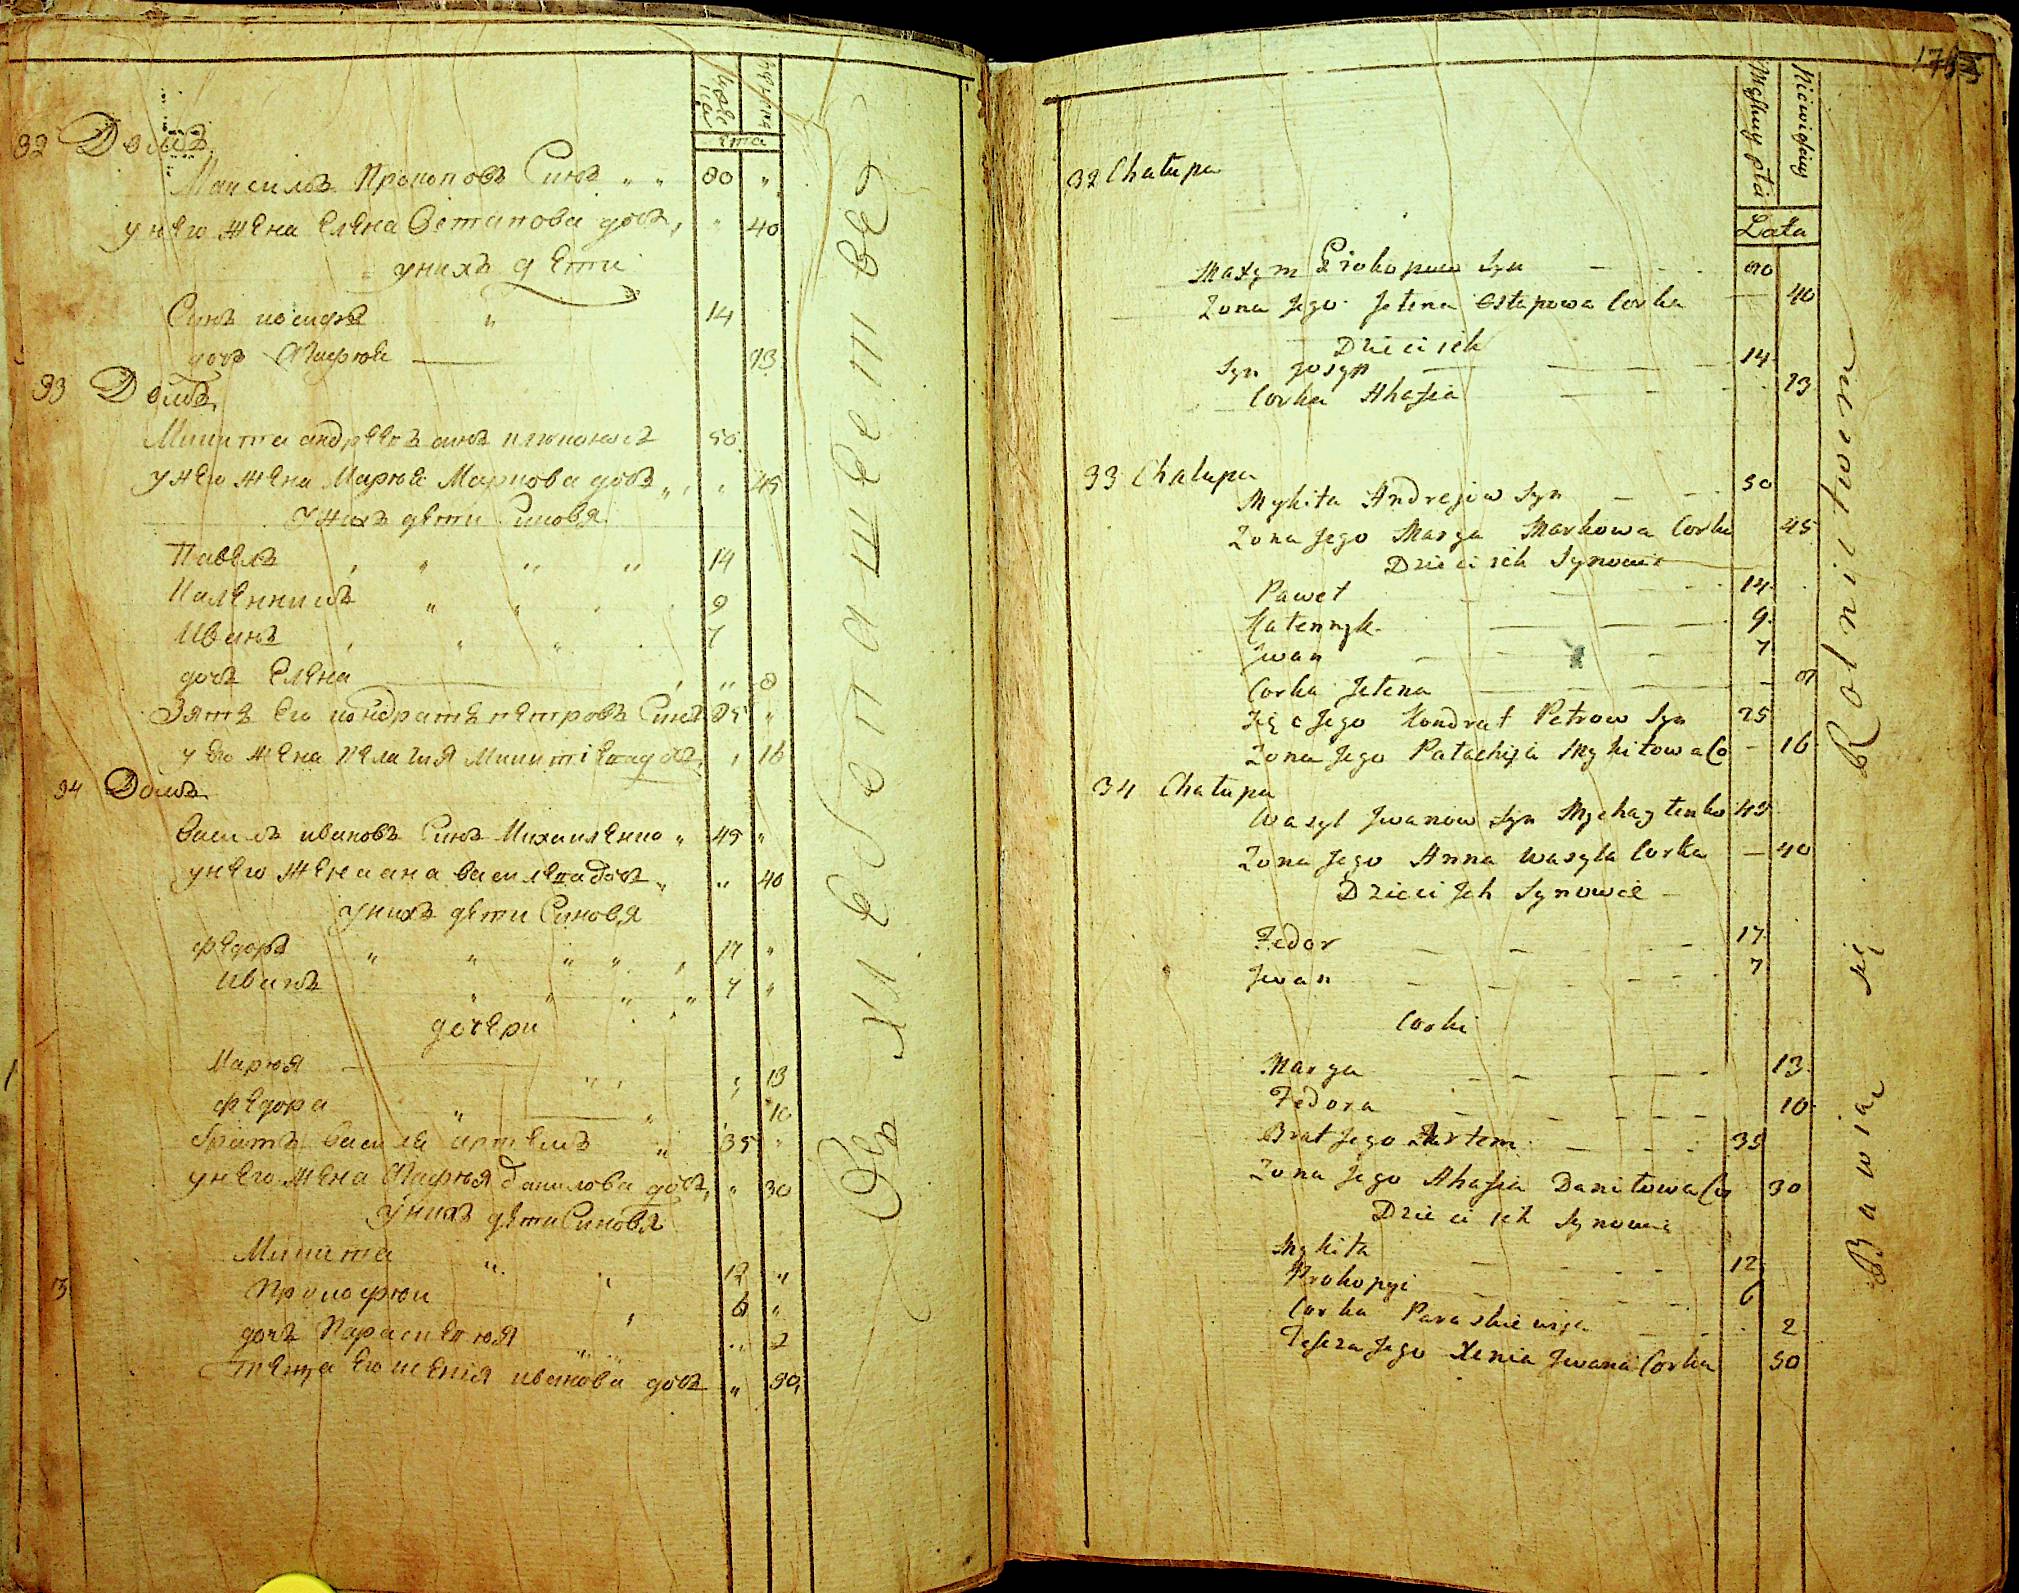 мужеска
женска
Лета
32 Домъ
Максимъ Прокоповъ Синъ " " 80 "
у него жена Елена Остапова дочъ, " 40
у нихъ дети
Синъ иосифъ " 14
дочъ Агафия 13
33 Домъ
Микита андреевъ синъ 50
у него жена Маря Маркова дочъ " " 45
У нихъ дети Синовя
Павелъ 14
Каленникъ 9
Иванъ 7
дочъ Елена " 8
Зятъ Его кондратъ петровъ Синъ 25 "
у его жена пелагия Микитина дочъ " 16
34 Домъ
Василъ ивановъ Синъ Михайленко " 45 "
у него жена ана Василева дочъ " " 40
у нихъ дети Синовя
федоръ " " " " 17 "
Иванъ " " " " 7 "
дочери
Мария " 13
федора " " 10
братъ Василя артемъ " 35 "
у него жена Агафия данилова дочъ, " 30
У нихъ дети Синовя
Микита " " 12 "
Прокофии 6 "
дочъ Параскевия " " 2
тиоща Его ксения иванова дочъ " 50
хлебопашествѣ
175
Męskiey płci
Niewieściey
Lata
32 Chałupa
Maxym Prokopow Syn 80
Zona Jego Jełena Ostapowa Corka 40
Dzieci ich
Syn Josyp 14
Corka Ahafia 13
33 Chałupa
Mykita Andrejow Syn 50
Zona Jego Marya Markowa Corka 45
Dzieci ich Synowie
Paweł 14
Kałennyk 9
Jwan 7
Corka Jełena 8
Zięc Jego Kondrat Petrow Syn 25
Zona Jego Pałachija Mykitowa Co 16
34 Chałupa
Wasyl Jwanow Syn Mychayłenko 45
Zona Jego Anna Wasyla Corka 40
Dzieci Jch Synowie
Fedor 17
Jwan 7
Corki
Marya 13
Fedora 10
Brat Jego Artem 35
Zona Jego Ahafia Daniłowa Co 30
Dzieci ich Synowie
Mykita 12
Prokopyi 6
Corka Paraskiewija 2
Teszcza Jego Xenia Jwana Corka 50
Bawią się Rolnictwem